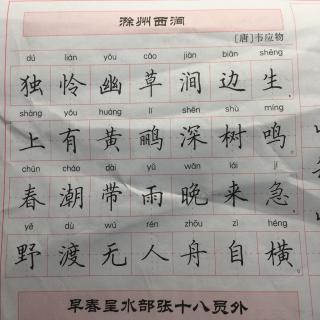 滁州西涧
[唐]韦应物
dú lián yōu cǎo jiàn biān shēng
独怜幽草涧边生,
shàng yǒu huáng lí shēn shù míng
上有黄鹂深树鸣。
chūn cháo dài yǔ wǎn lái jí
春潮带雨晚来急,
yě dù wú rén zhōu zì héng
野渡无人舟自横。
早春呈水部张十八员外